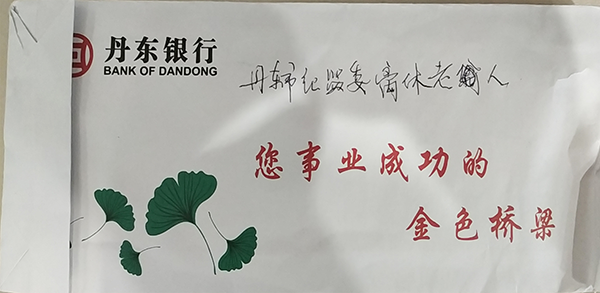 丹东银行
BANK OF DANDONG
丹东市纪监委离休老人
您事业成功的
金色桥梁